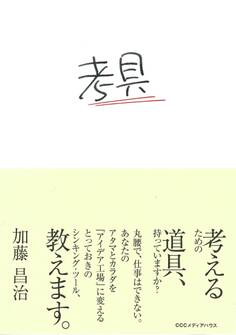 考具
考える
ための
道具、
持っていますか？
丸腰で、仕事はできない。
あなたの
アタマとカラダを
「アイデア工場」に変える
とっておきの
シンキング・ツール、
教えます。
加藤昌治
©CCCメディアハウス